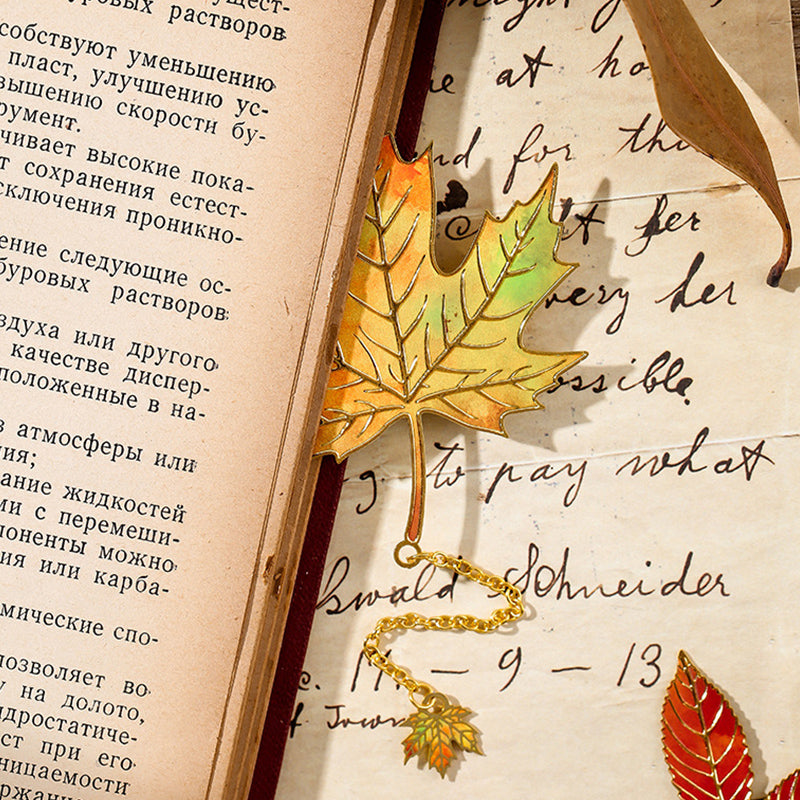 ущест-
буровых растворов
особствуют уменьшению
пласт, улучшению ус-
вышению скорости бу-
румент.
чивает высокие пока-
т сохранения естест-
сключения проникно-
ение следующие ос-
буровых растворов
здуха или другого
качестве диспер-
положенные в на-
з атмосферы или
ия;
ание жидкостей
ми с перемеши-
поненты можно
ия или карба-
мические спо-
позволяет во
у на долото,
идростатиче-
ст при его
ницаемости
ржани
might
at ho
nd for thi
't her
very her
ossible
to pay what
swald Schneider
11 – 9 – 13